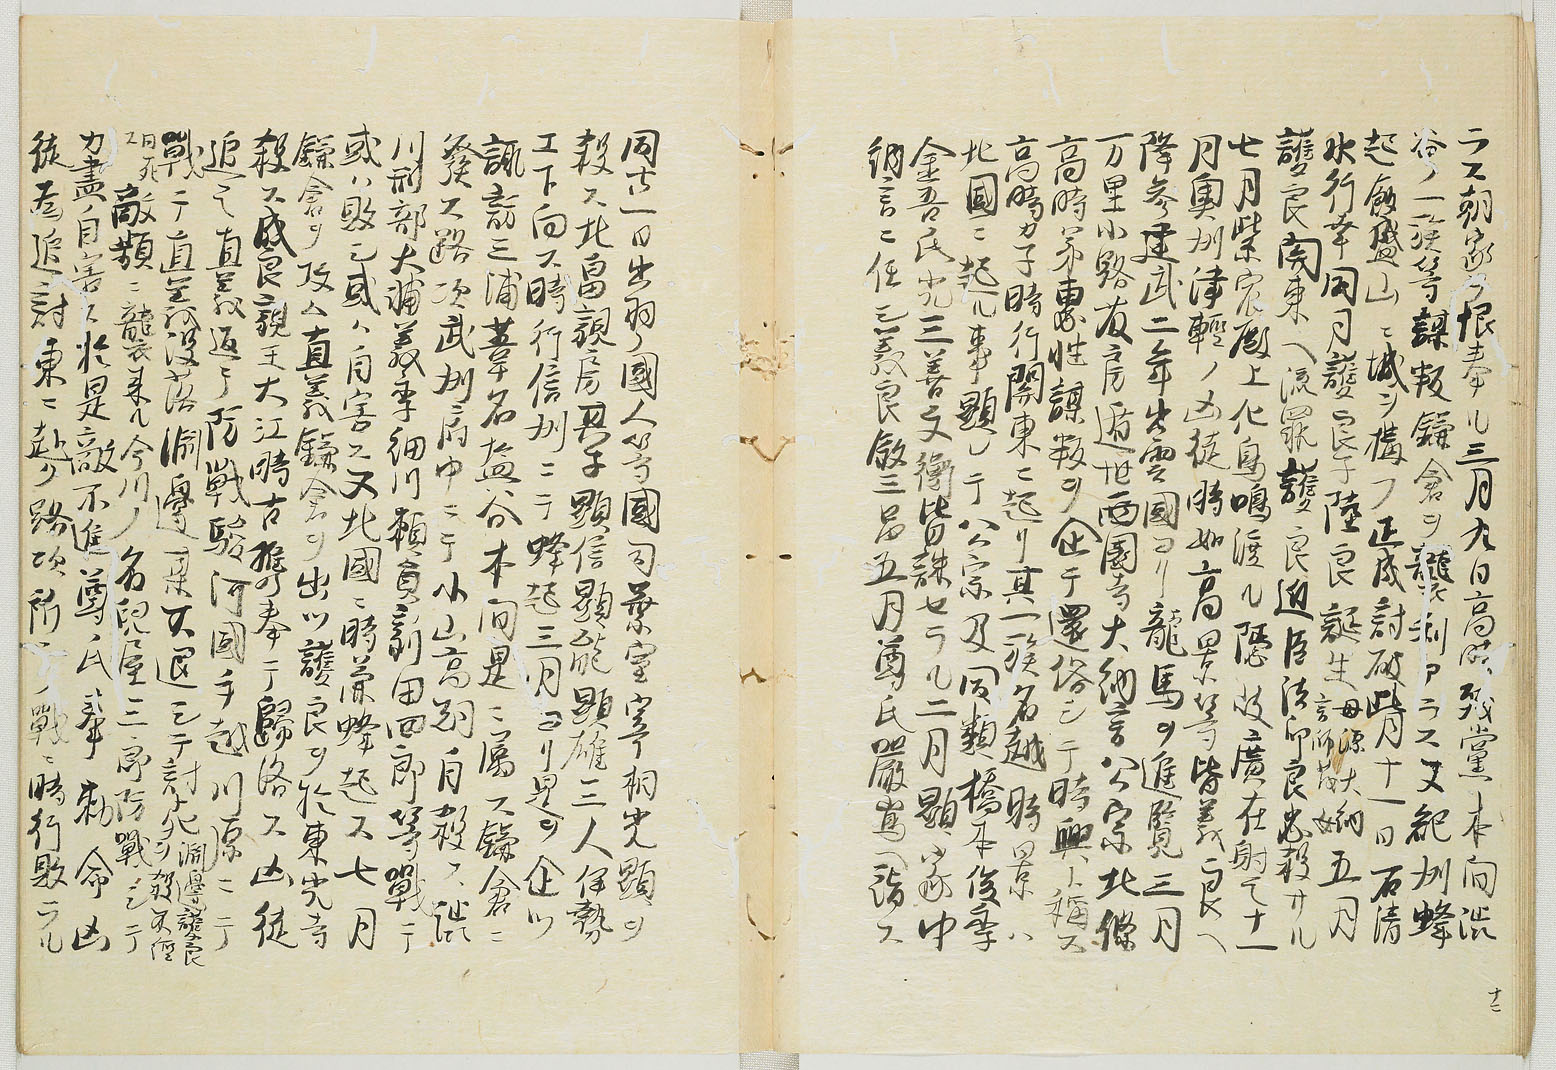 ラス朝家ヲ恨奉ル三月九日高時残黨本間渋
谷ノ一族等謀叛鎌倉ヲ襲利アラス又紀州蜂
起飯盛山ニ城ヲ構フ正成討破此月十一日石清
水行幸同月護良子陸良誕生母源大納言師茂女五月
護良関東ヘ流罪護良近臣法印良忠殺サル
七月紫宸殿上化鳥鳴渡ル隠岐廣在射之十一
月奥州津軽ノ凶徒時如高景等皆義良ヘ
降参建武二年出雲國ヨリ龍馬ヲ進覧三月
万里小路藤房遁世西園寺大納言公宗北條
高時弟惠性謀叛ヲ企テ還俗シテ時興ト稱ス
高時カ子時行関東ニ起リ其一族名越時景ハ
北國ニ起ル事顕レテ公宗及同類橋本俊季
金吾氏光三善文衡皆誅セラル二月顕家中
納言ニ任シ義良敘三品五月尊氏嚴嶌ヘ詣ス
同廿一日出羽國人等國司葉室宰相光顕ヲ
殺ス北畠親房男子顕信顕能顕雄三人伊勢
エ下向ス時行信州ニテ蜂起三月ヨリ是ヲ企ツ
諏訪三浦葦名塩谷本間是ニ属ス鎌倉ニ
發ス路次武州府中ニテ小山高朝自殺ス渋
川刑部大輔義季細川頼貞新田四郎等戰テ
或ハ敗シ或ハ自害ス又北國ニ時兼蜂起ス七月
鎌倉ヲ攻ム直義鎌倉ヲ出ツ護良ヲ於東光寺
殺ス成良親王大江時古推奉テ歸洛ス凶徒
追之直義返テ防戰駿河國手越川原ニテ
戰テ直義没落渕邊取テ返シテ討死渕邊護良ヲ殺不經
日死ス敵頻ニ襲来ル今川ノ名兒屋三郎防戰シテ
力盡ノ自害ス於是敵不進尊氏奉勅命凶
徒爲追討東ニ赴ク路次所々ノ戰ニ時行敗ラル
十二